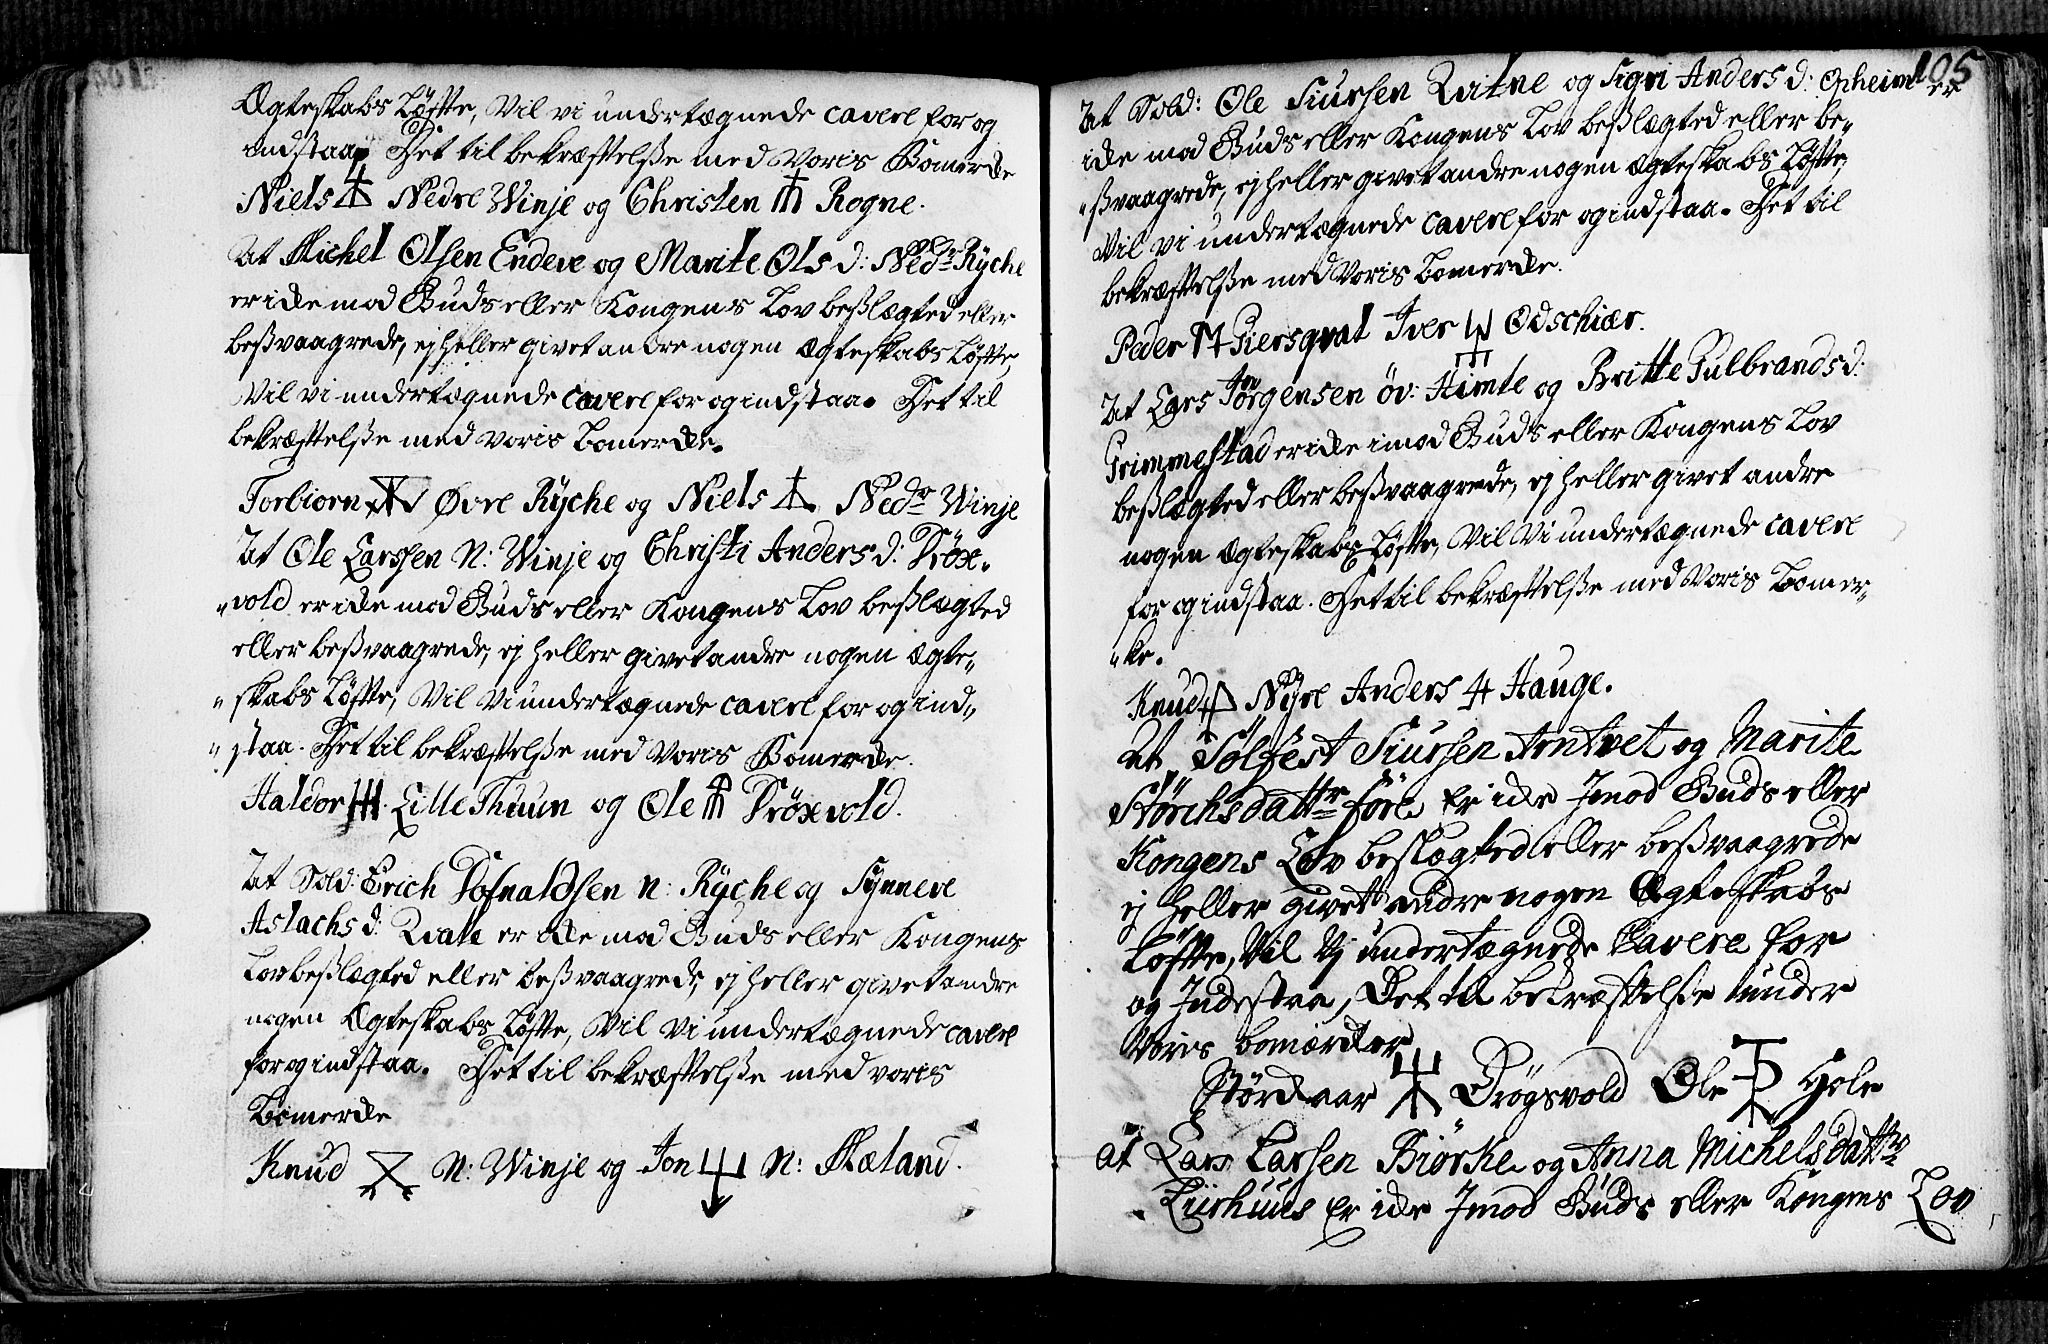 Ægteskabs Løffte, Vil vi undertægnede cavere for og
indstaa. Det til bekræfftelsse med Voris Bomercke
Niels Nedre Winje og Christen Rogne.
At Michel Olsen Endere og Marite Ols d: Nedr Rÿche
er icke mod Guds eller Kongens Lov beslægted eller
beßvaagrede, ej heller givet andre nogen ægteskabs Løffte,
Vil vi undertægnede cavere for og indstaa. Det til
bekræfftelsse med voris bomercke.
Torbiorn Øvre Rÿche og Niels Nedr Winje
At Ole Larssen N: Winje og Christi Anders d: Dröx-
vold er icke mod Guds eller Kongens Lov beßlægted
eller beßvaagrede, ej heller givet andre nogen ægte-
skabs Løffte, Vil Vi undertægnede cavere for og ind-
staa. Det til bekræfftelsse med Voris Bomercke.
Haldor Lille Thuun og Ole Dröxvold.
At Sold: Erich Tofnaldsen n: Rÿche og Synneve
Aslachs d: Qvale er icke mod Guds eller Kongens
Lov beßlægted eller beßvaagrede, ej heller givet andre
nogen Ægteskabs Løffte, Vil Vi undertægnede cavere
for og indstaa. Det til bekræfftelsse med voris
Bomercke
Knud N: Winje og Jon N: Mæland.
105
At Sold: Ole Siursen Qvitne og Sigri Anders d: Opheim er
icke mod Guds eller Kongens Lov beßlægted eller be-
ßvaagrede, ej heller givet andre nogen ægteskabs Løffte,
Vil vi undertægnede cavere for og indstaa. Det til
bekræfftelsse med Voris bomercke.
Peder Giersqval Iver Odschiær.
At Lars Jörgensen öv: Himle og Britte Gulbrands d:
Grimmestad er icke imod Guds eller Kongens Lov
beßlægted eller beßvaagrede, ej heller givet andre
nogen ægteskabs Løffte, Vil Vi undertægnede cavere
for og indstaa. Det til bekræfftelsse med Voris bomer-
ke.
Knud Nÿre Anders Hauge.
At Sölfest Siursen Arntvet og Marite
Störchsdattr före Er icke Jmod Guds eller
Kongens Lov beslægted eller beßvaagrede
ej heller givet andre nogen Ægteskabs
Løffte, Vil Vj undertægnede Cavere for
og Jndestaa, Det til bekræfftelsse under
Voris bomærcker
Störckaar Drögsvold Ole Hole
at Lars Larsen Biørke og Anna Michelsdattr
Liirhuus Er icke Jmod Guds eller Kongens Lov